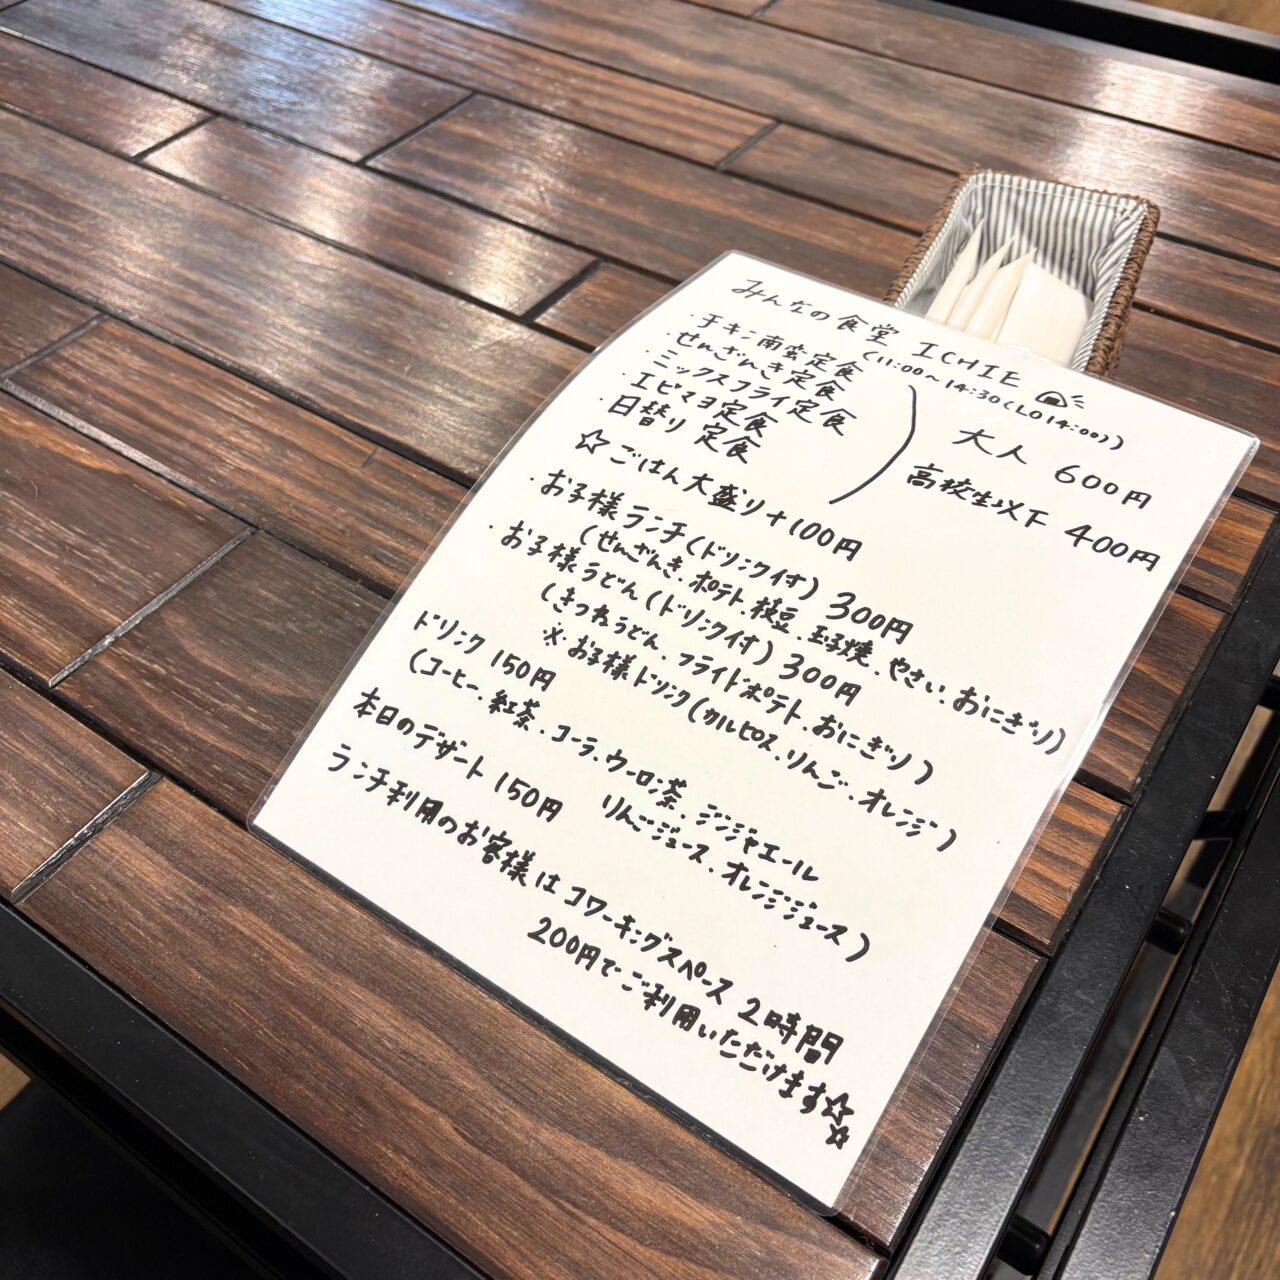 みんなの食堂 ICHIE
(11:00～14:30(LO14:00))
・チキン南蛮定食
・せんざんき定食
・ミックスフライ定食
・エビマヨ定食
・日替り定食
大人 600円
高校生以下 400円
☆ごはん大盛り+100円
・お子様ランチ(ドリンク付) 300円
(せんざんき、ポテト、枝豆、玉子焼、やさい、おにぎり)
・お子様うどん(ドリンク付) 300円
(きつねうどん、フライドポテト、おにぎり)
※お子様ドリンク(カルピス、りんご、オレンジ)
ドリンク 150円
(コーヒー、紅茶、コーラ、ウーロン茶、ジンジャエール
りんごジュース、オレンジジュース)
本日のデザート 150円
ランチ利用のお客様はコワーキングスペース 2時間
200円でご利用いただけます☆☆